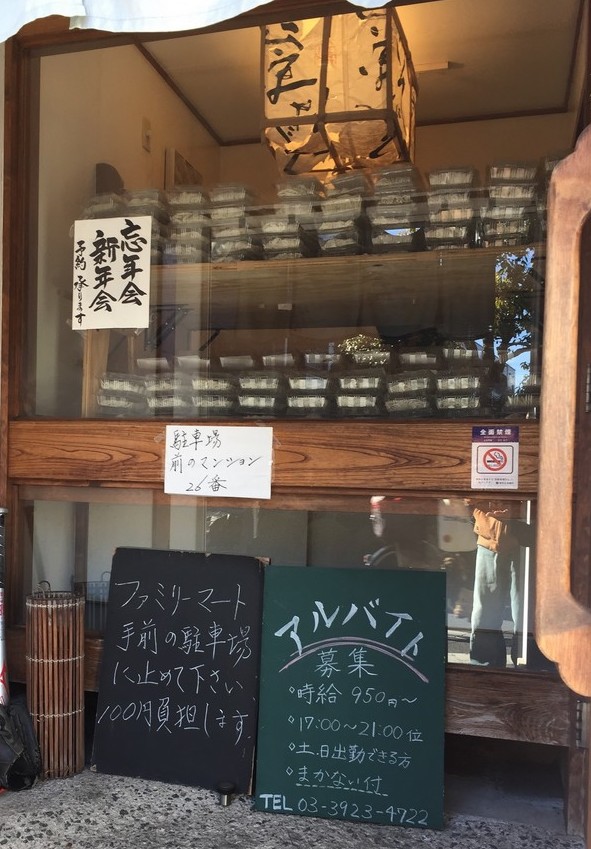 忘年会
新年会
予約承ります
駐車場
前のマンション
26番
全面禁煙
ファミリーマート
手前の駐車場
に止めて下さい
100円負担します.
アルバイト
募集
◦時給 950円〜
◦17:00〜21:00位
◦土.日出勤できる方
◦まかない付
TEL 03-3923-4722